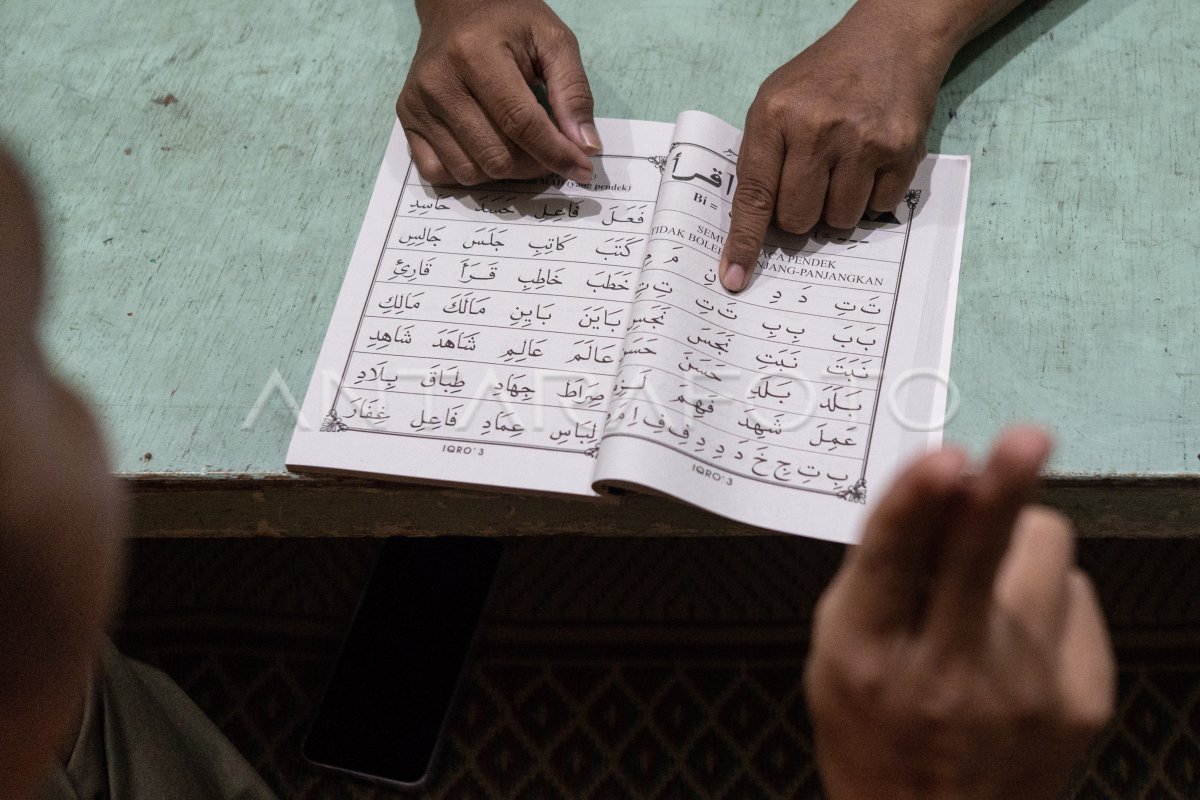 اقرأ
Bi =
TIDAK BOLE
PENDEK
NJANG-PANJANGKAN
تَ تِ دَ دِ
بَ بَ بِ بِ تَ تِ
نَبَتَ نَبَتِ نَجَسَ نَجَسِ
بَلَدَ بَلَدِ حَسَنَ حَسَنِ
عَمِلَ شَهِدَ فَهِمَ
بِ تِ جِ خَ دَ دِ
IQRO'3
(yang pendek)
فَعَلَ فَاعِلِ حَسَدَ حَاسِدِ
كَتَبَ كَاتِبِ جَلَسَ جَالِسِ
خَطَبَ خَاطِبِ قَرَأَ قَارِئِ
بَايَنَ بَايِنِ مَالَكَ مَالِكِ
عَالَمَ عَالِمِ شَاهَدَ شَاهِدِ
صِرَاطَ جِهَادِ طِبَاقَ بِلَادِ
لِبَاسِ عِمَادِ فَاعِلِ غِفَارَ
IQRO'3
ANTARAFOTO